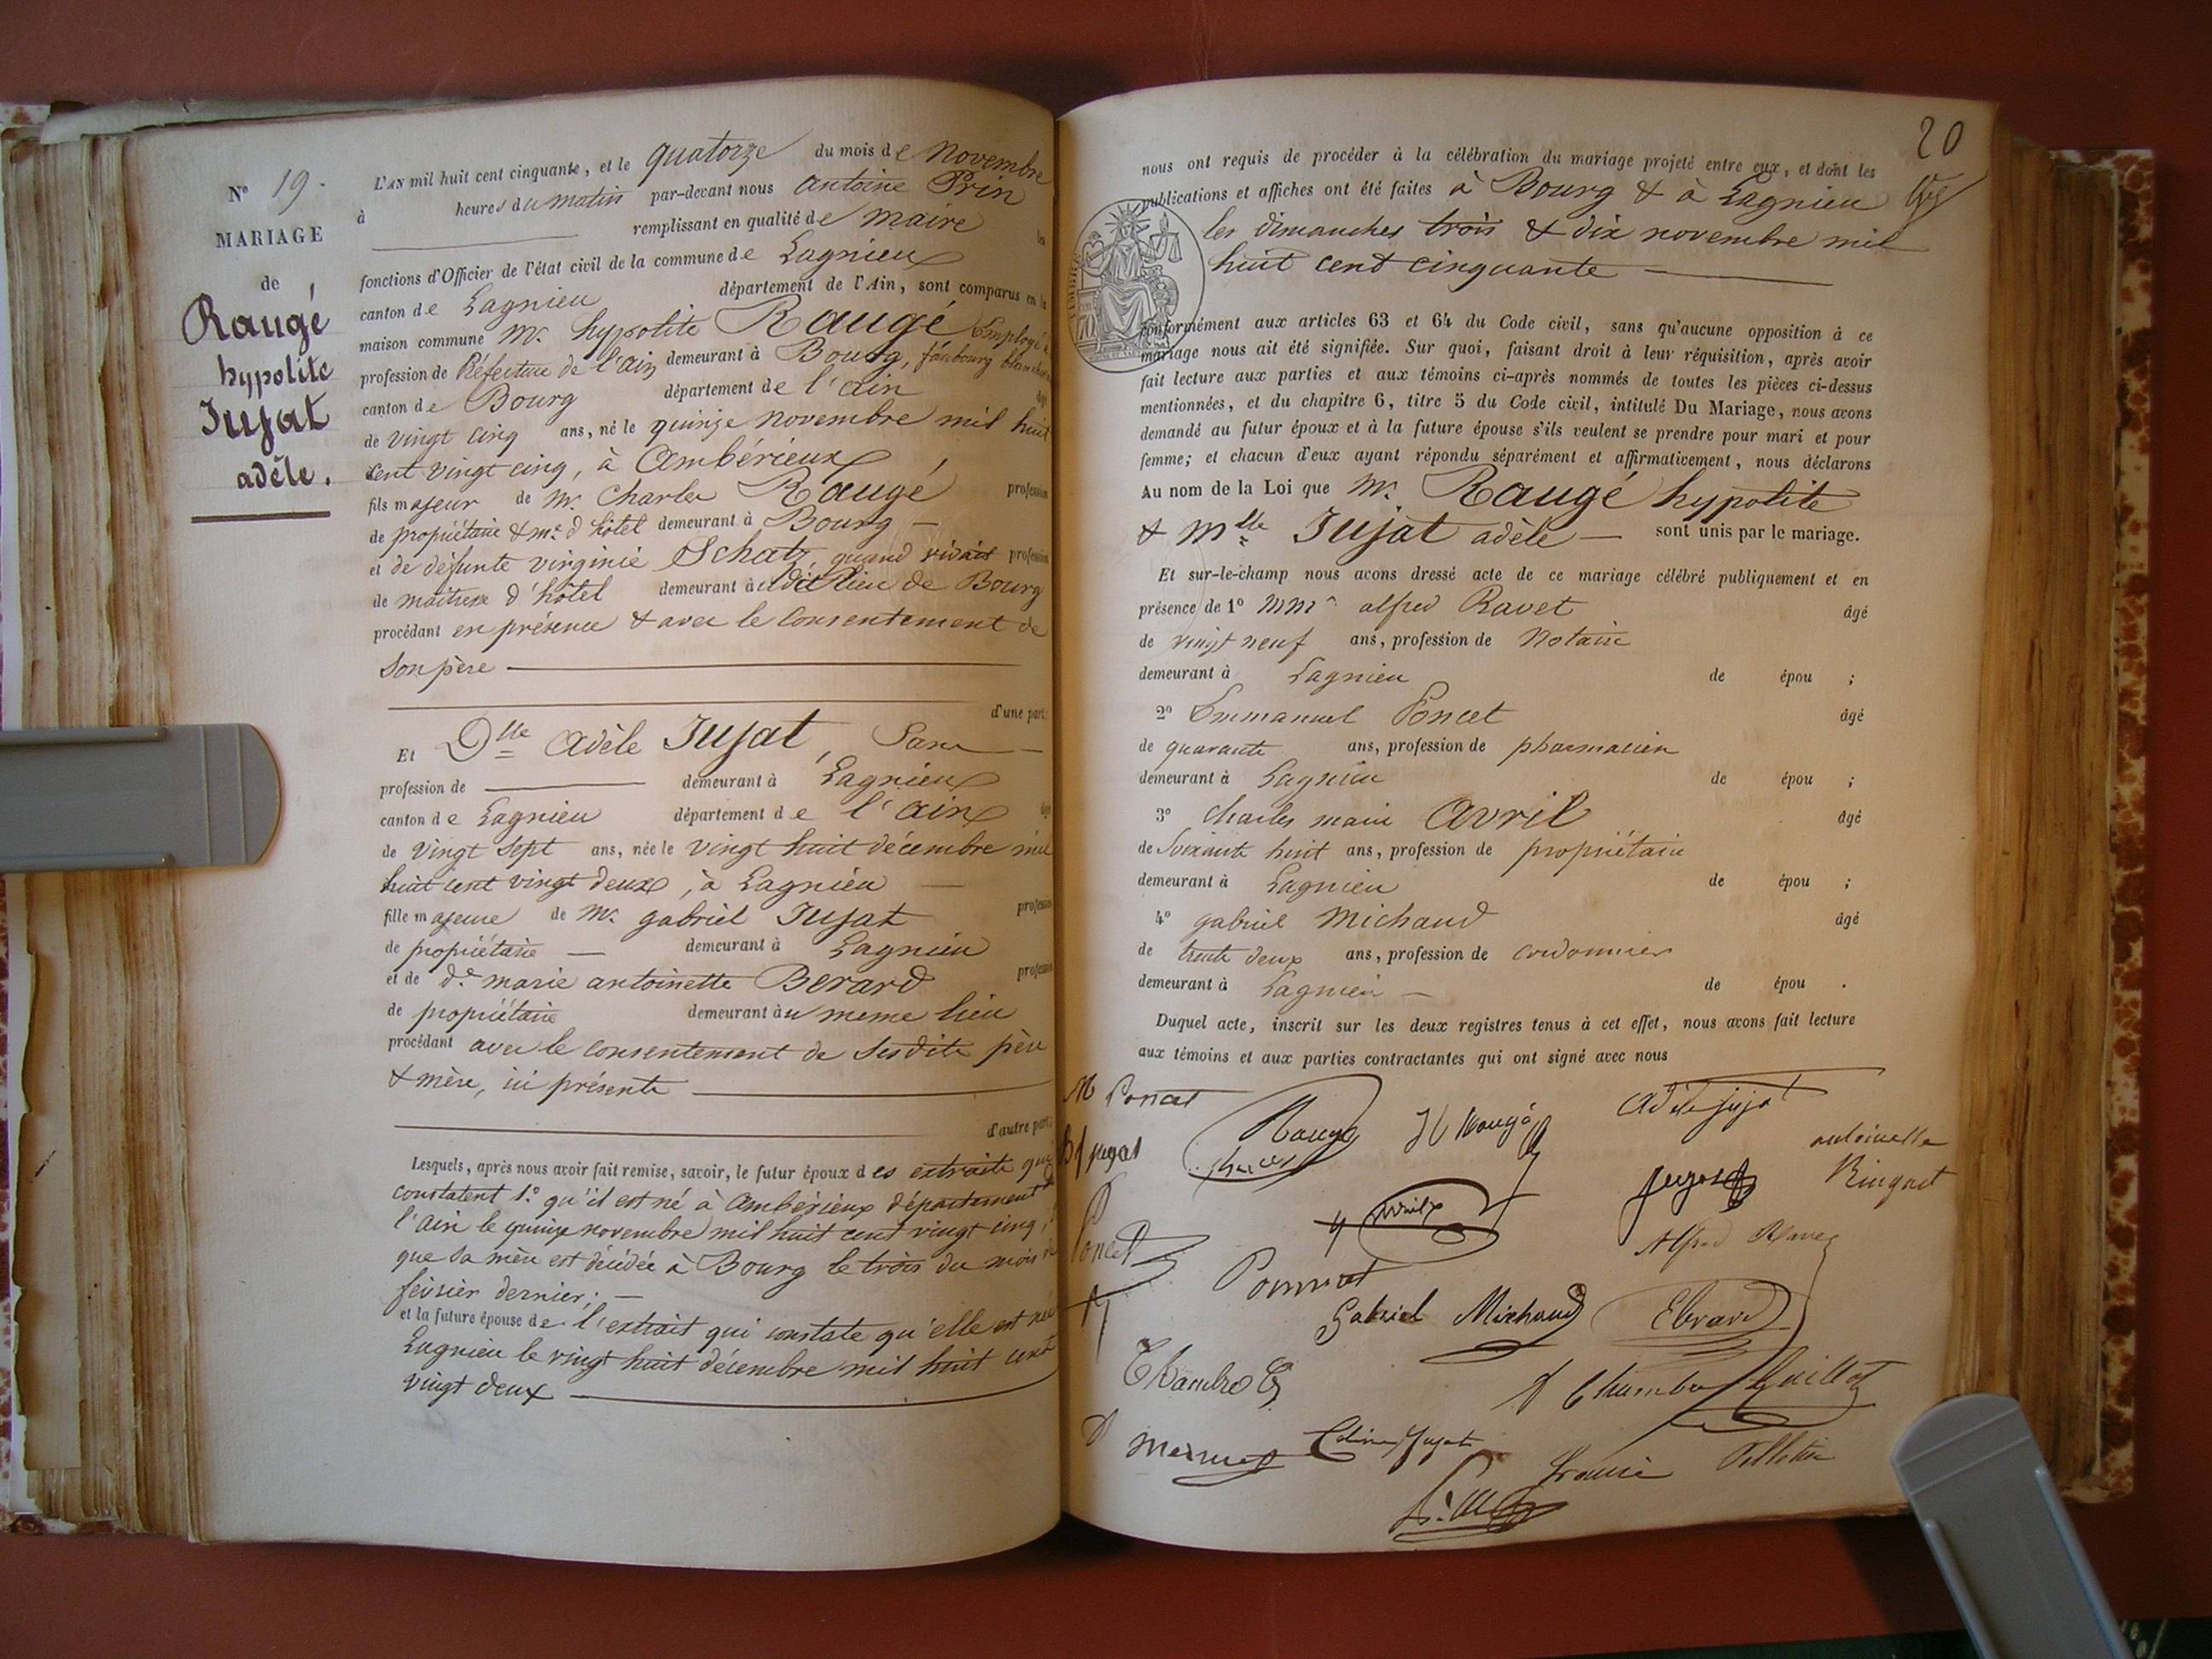 N° 19.
MARIAGE
de
Raugé
hypolite
Jujat
adèle.
L'AN mil huit cent cinquante, et le quatorze du mois de novembre
à heures du matin par-devant nous antoine Prin
remplissant en qualité de maire les
fonctions d'Officier de l'état civil de la commune de Lagnieu
canton de Lagnieu département de l'Ain, sont comparus en la
maison commune Mr. hypolite Raugé Employé à
profession de Préfecture de l'ain demeurant à Bourg, faubourg
canton de Bourg département de l'ain âgé
de vingt cinq ans, né le quinze novembre mil huit
cent vingt cinq, à Ambérieux
fils majeur de Mr. Charles Raugé profession
de propriétaire & me d'hôtel demeurant à Bourg
et de défunte virginie Schatz, quand vivait profession
de maitresse d'hôtel demeurant audit lieu de Bourg
procédant en présence & avec le consentement de
Son père
d'une part.
Et Dlle Adèle Jujat, Sans
profession de demeurant à Lagnieu
canton de Lagnieu département de l'ain âgée
de vingt sept ans, née le vingt huit décembre mil
huit cent vingt deux, à Lagnieu
fille majeure de Mr. gabriel Jujat profession
de propriétaire demeurant à Lagnieu
et de de marie antoinette Berard profession
de propriétaire demeurant au meme lieu
procédant avec le consentement de sesdits père
& mère, ici présents
d'autre part.
Lesquels, après nous avoir fait remise, savoir, le futur époux des extraits qui
constatent 1.° qu'il est né à Ambérieux département de
l'ain le quinze novembre mil huit cent vingt cinq,
que sa mère est décédée à Bourg le trois du mois de
février dernier;
et la future épouse de l'extrait qui constate qu'elle est née
Lagnieu le vingt huit décembre mil huit cent
vingt deux
20
nous ont requis de procéder à la célébration du mariage projeté entre eux, et dont les
publications et affiches ont été faites à Bourg & à Lagnieu
les dimanches trois & dix novembre mil
huit cent cinquante
conformément aux articles 63 et 64 du Code civil, sans qu'aucune opposition à ce
mariage nous ait été signifiée. Sur quoi, faisant droit à leur réquisition, après avoir
fait lecture aux parties et aux témoins ci-après nommés de toutes les pièces ci-dessus
mentionnées, et du chapitre 6, titre 5 du Code civil, intitulé Du Mariage, nous avons
demandé au futur époux et à la future épouse s'ils veulent se prendre pour mari et pour
femme; et chacun d'eux ayant répondu séparément et affirmativement, nous déclarons
Au nom de la Loi que Mr. Raugé hypolite
& Mlle Jujat adèle sont unis par le mariage.
Et sur-le-champ nous avons dressé acte de ce mariage célébré publiquement et en
présence de 1° MMrs alfred Ravet âgé
de vingt neuf ans, profession de Notaire
demeurant à Lagnieu de épou ;
2° Emmanuel Poncet âgé
de quarante ans, profession de pharmacien
demeurant à Lagnieu de épou ;
3° Charles marie Avril âgé
de Soixante huit ans, profession de propriétaire
demeurant à Lagnieu de épou ;
4° gabriel Michaud âgé
de trente deux ans, profession de cordonnier
demeurant à Lagnieu de épou .
Duquel acte, inscrit sur les deux registres tenus à cet effet, nous avons fait lecture
aux témoins et aux parties contractantes qui ont signé avec nous
M Poncet
Raugé
Charles
H Raugé
Adèle Jujat
jujat
antoinette
Poncet
Gabriel Michaud
Ebrard